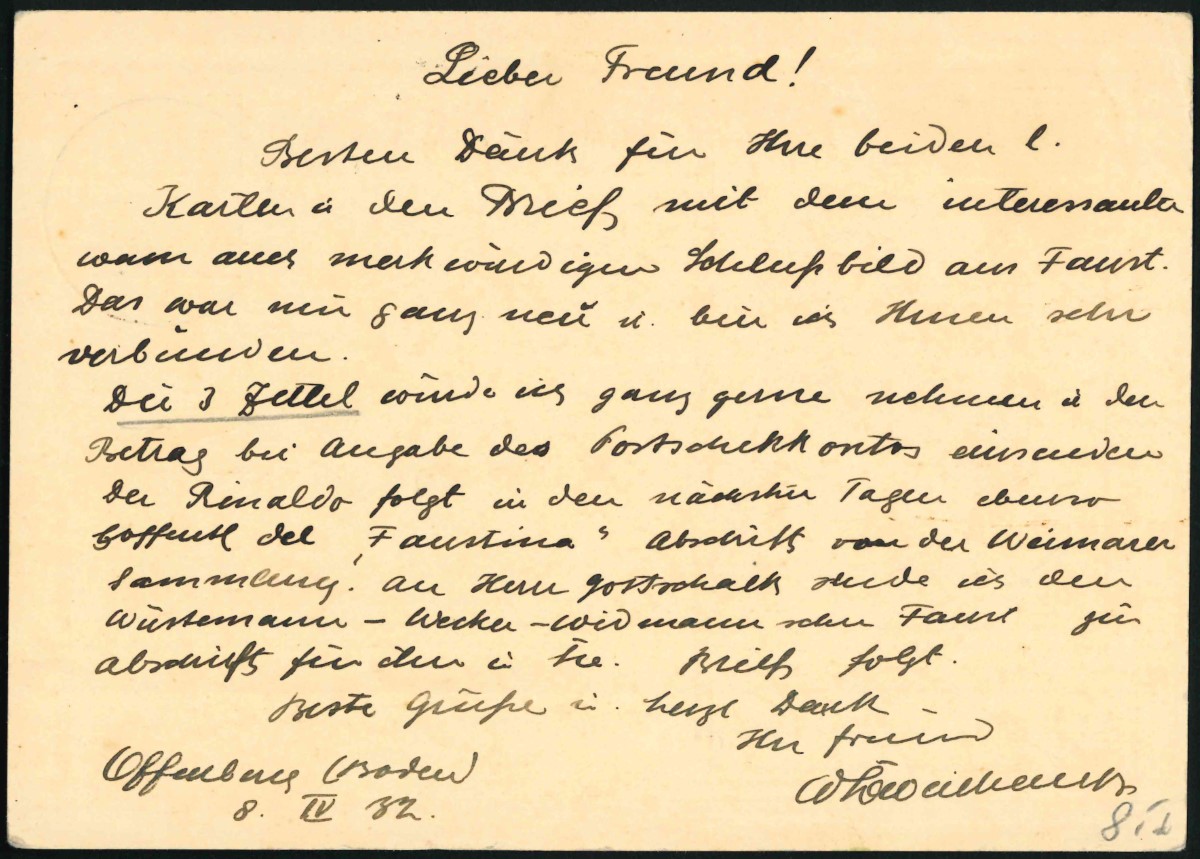 Lieber Freund!
Besten Dank für Ihre beiden l.
Karten u den Brief mit dem interessanten
wenn auch merkwürdigen Schlußbild aus Faust.
Das war mir ganz neu u. bin ich Ihnen sehr
verbunden.
Die 3 Zettel würde ich ganz gerne nehmen u den
Betrag bei Angabe des Postschekkontos einsenden
Der Rinaldo folgt in den nächsten Tagen ebenso
hoffentl der „Faustina" Abschrift von der Weimarer
Sammlung. An Herrn Gottschalk sende ich den
Wüstemann - Wecker - Widmannschen Faust zur
Abschrift für ihn u Sie. Brief folgt.
Beste Grüße u. herzl Dank
Ihr Freund
Offenburg (Baden)
8. IV 32.